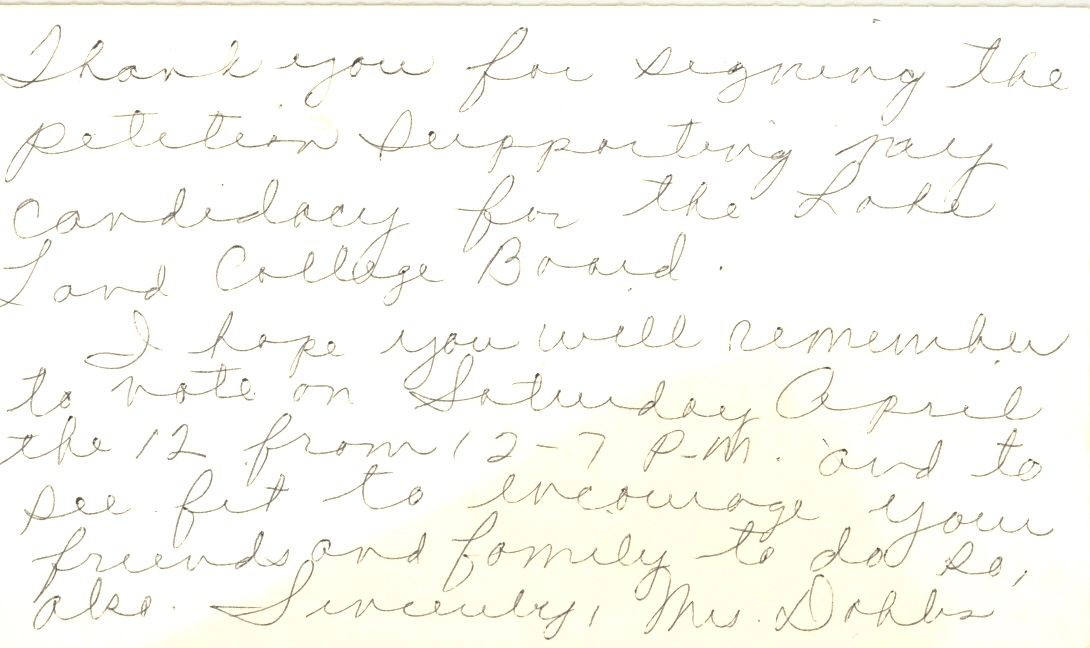 Thank you for signing the
petition supporting my
candidacy for the Lake
Land College Board.
I hope you will remember
to vote on Saturday April
the 12 from 12-7 P.M. and to
see fit to encourage your
friends and family to do so,
also. Sincerely, Mrs. Dobbs